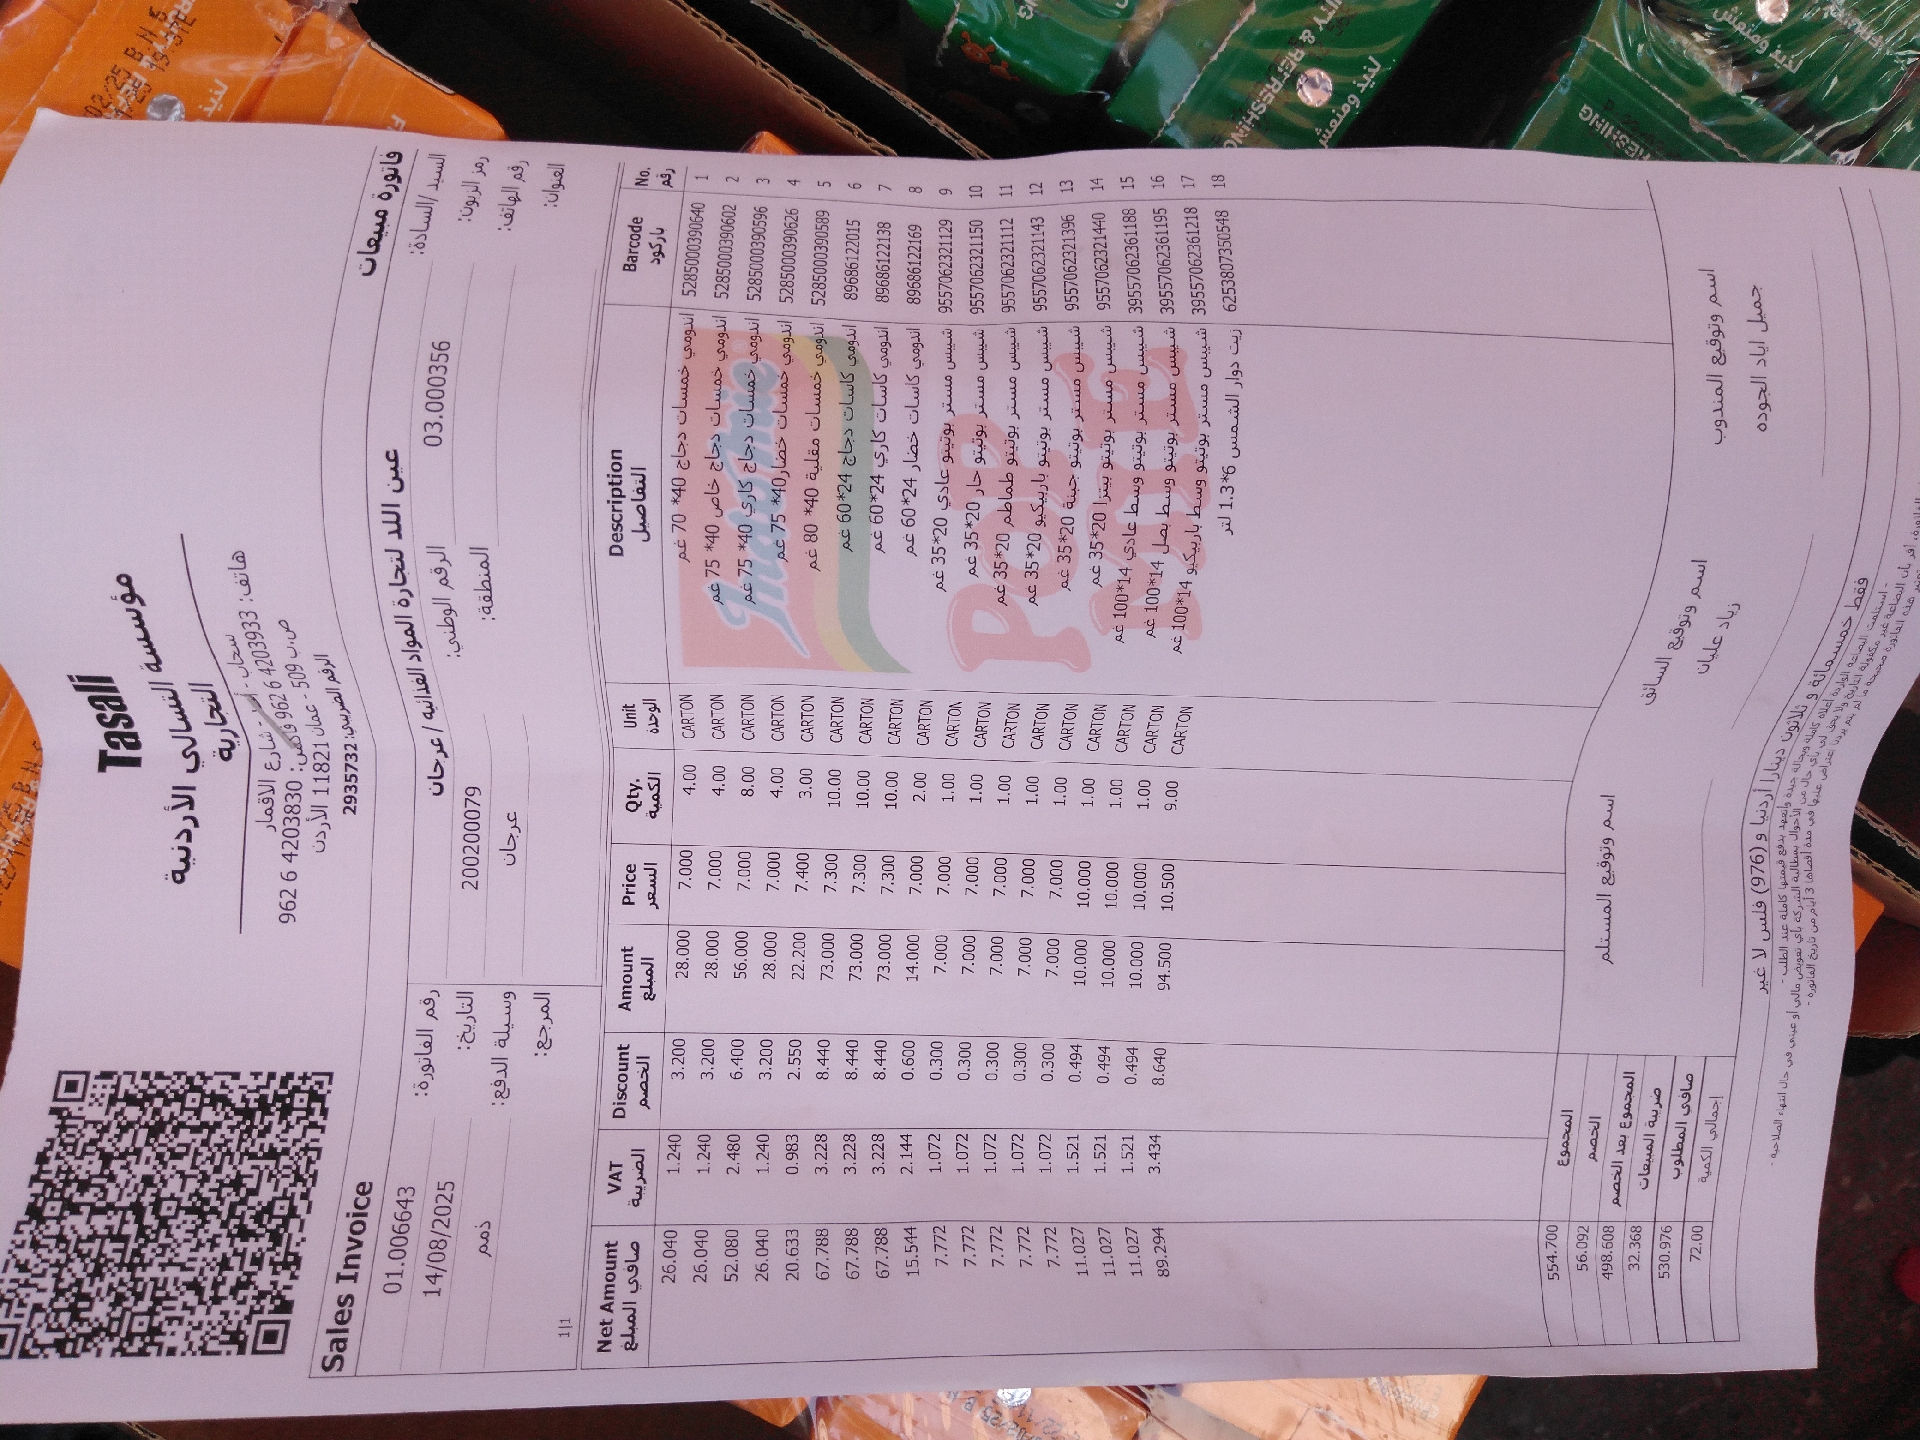 Tasali
مؤسسة التسالي الأردنية
التجارية
هاتف: 4203933 6 962
962 6 4203830
ص.ب 509 - عمان 11821 الأردن
الرقم الضريبي: 2935732
Sales Invoice فاتورة مبيعات
السيد/السادة: عين اللد لتجارة المواد الغذائية / عرجان
رقم الفاتورة: 01.006643
رمز الزبون: 03.000356 الرقم الوطني: 200200079
التاريخ: 14/08/2025
رقم الهاتف: المنطقة: عرجان
وسيلة الدفع: ذمم
العنوان: المرجع:
1|1
Net Amount VAT Discount Amount Price Qty. Unit Description Barcode No.
صافي المبلغ الضريبة الخصم المبلغ السعر الكمية الوحدة التفاصيل باركود رقم
26.040 1.240 3.200 28.000 7.000 4.00 CARTON اندومي خمسات دجاج 40* 70 غم 5285000390640 1
26.040 1.240 3.200 28.000 7.000 4.00 CARTON اندومي خمسات دجاج خاص 40* 75 غم 5285000390602 2
52.080 2.480 6.400 56.000 7.000 8.00 CARTON اندومي خمسات دجاج كاري 40* 75 غم 5285000390596 3
26.040 1.240 3.200 28.000 7.000 4.00 CARTON اندومي خمسات خضار 40* 75 غم 5285000390626 4
20.633 0.983 2.550 22.200 7.400 3.00 CARTON اندومي خمسات مقلية 40* 80 غم 5285000390589 5
67.788 3.228 8.440 73.000 7.300 10.00 CARTON اندومي كاسات دجاج 24*60 غم 89686122015 6
67.788 3.228 8.440 73.000 7.300 10.00 CARTON اندومي كاسات كاري 24*60 غم 89686122138 7
67.788 3.228 8.440 73.000 7.300 10.00 CARTON اندومي كاسات خضار 24*60 غم 89686122169 8
15.544 2.144 0.600 14.000 7.000 2.00 CARTON شيبس مستر بوتيتو عادي 20*35 غم 9557062321129 9
7.772 1.072 0.300 7.000 7.000 1.00 CARTON شيبس مستر بوتيتو حار 20*35 غم 9557062321150 10
7.772 1.072 0.300 7.000 7.000 1.00 CARTON شيبس مستر بوتيتو طماطم 20*35 غم 9557062321112 11
7.772 1.072 0.300 7.000 7.000 1.00 CARTON شيبس مستر بوتيتو باربيكيو 20*35 غم 9557062321143 12
7.772 1.072 0.300 7.000 7.000 1.00 CARTON شيبس مستر بوتيتو جبنة 20*35 غم 9557062321396 13
7.772 1.072 0.300 7.000 7.000 1.00 CARTON شيبس مستر بوتيتو بيتزا 20*35 غم 9557062321440 14
11.027 1.521 0.494 10.000 10.000 1.00 CARTON شيبس مستر بوتيتو وسط عادي 14*100 غم 3955706236118​8 15
11.027 1.521 0.494 10.000 10.000 1.00 CARTON شيبس مستر بوتيتو وسط بصل 14*100 غم 39557062361195 16
11.027 1.521 0.494 10.000 10.000 1.00 CARTON شيبس مستر بوتيتو وسط باربيكيو 14*100 غم 39557062361218 17
89.294 3.434 8.640 94.500 10.500 9.00 CARTON زيت دوار الشمس 6*1.3 لتر 6253807350548 18
Indomie
POP MIE
المجموع 554.700
الخصم 56.092
المجموع بعد الخصم 498.608
ضريبة المبيعات 32.368
صافي المطلوب 530.976
إجمالي الكمية 72.00
اسم وتوقيع المندوب
جميل اياد الجوده
اسم وتوقيع السائق
زياد عليان
اسم وتوقيع المستلم
فقط خمسمائة و ثلاثون دينارا أردنيا و (976) فلس لا غير